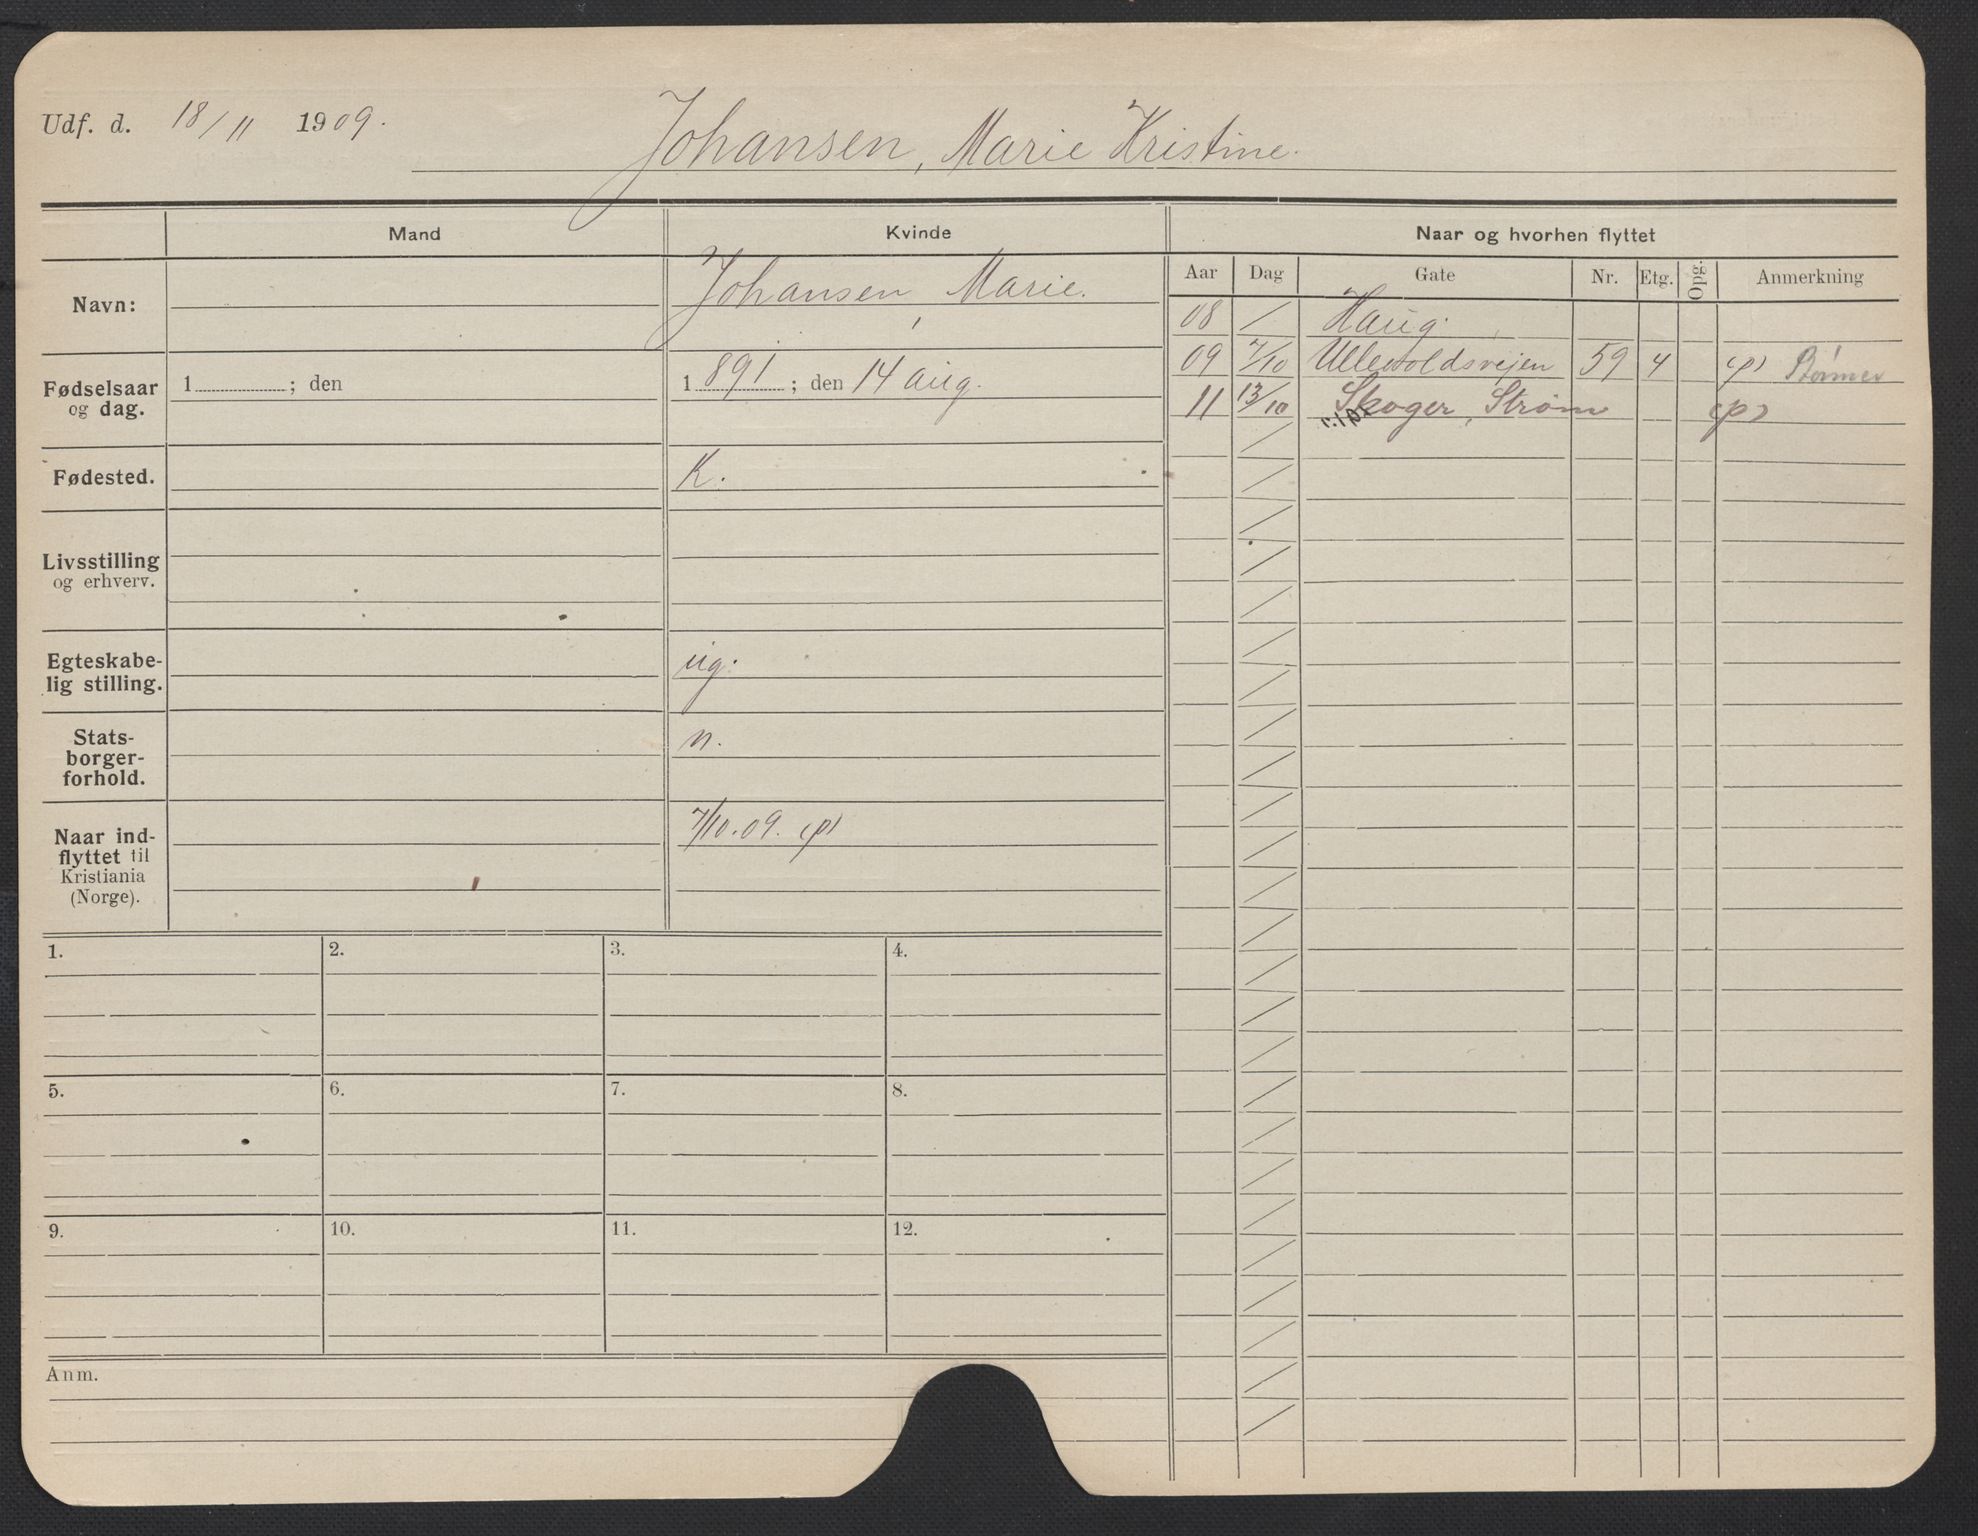 Udf. d. 18/11 1909.
Johansen, Marie Kristine.
Mand
Kvinde
Naar og hvorhen flyttet
Aar Dag Gate Nr. Etg. Opg. Anmerkning
Navn:
Johansen, Marie.
Fødselsaar og dag.
1 ; den
1891 ; den 14 aug.
Fødested.
K.
Livsstilling og erhverv.
Egteskabe-
lig stilling.
ug.
Stats-
borger-
forhold.
n.
Naar ind-
flyttet til
Kristiania
(Norge).
7/10.09. (p)
08 / Haug.
09 7/10 Ullevoldsvejen 59 4 (p)
11 13/10 Skoger, Strøm (p)
1. 2. 3. 4.
5. 6. 7. 8.
9. 10. 11. 12.
Anm.